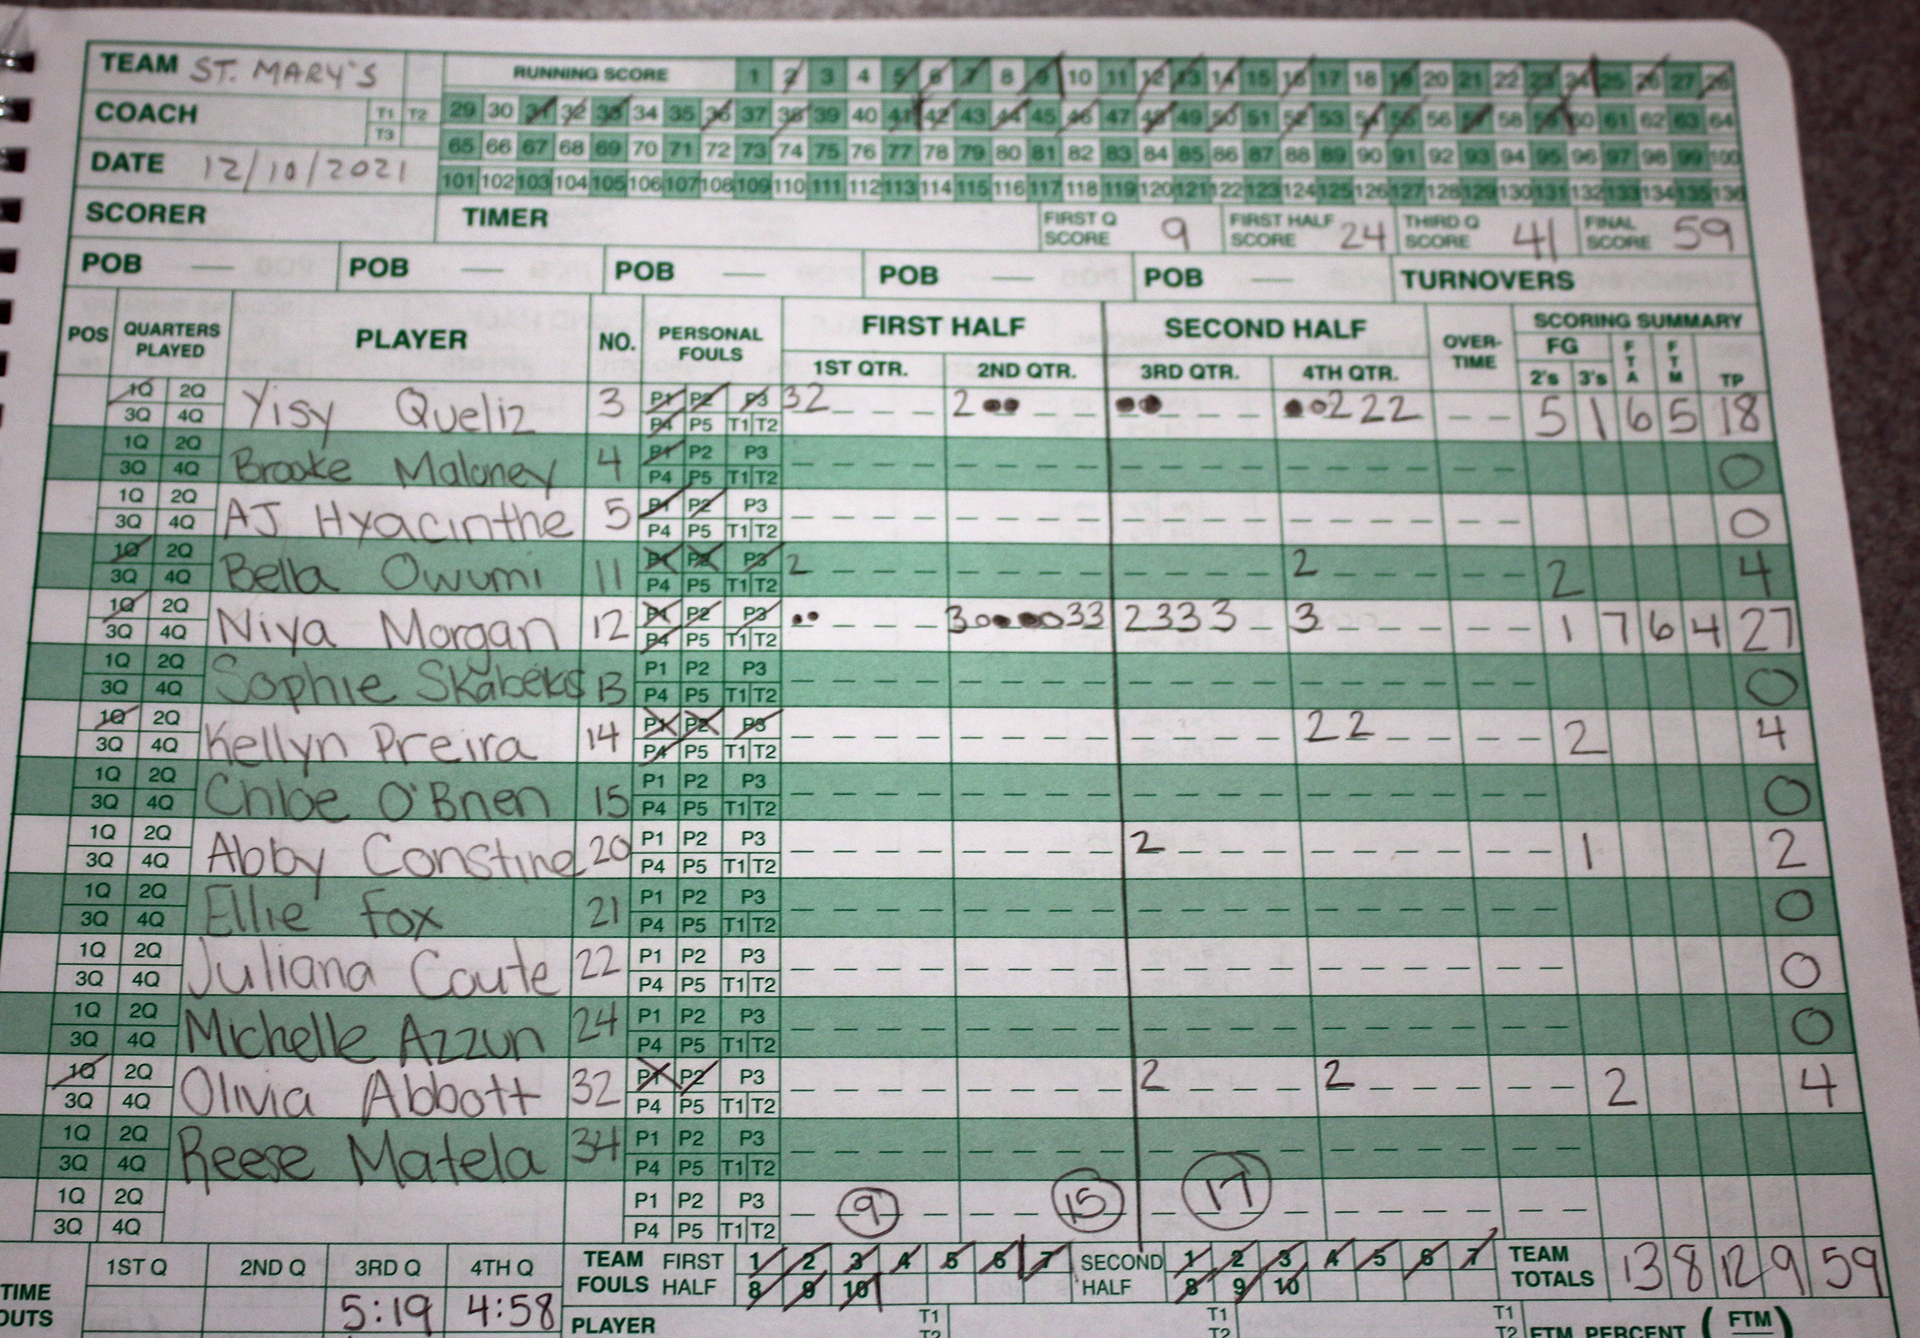 TEAM ST. MARY'S RUNNING SCORE 1 2 3 4 5 6 7 8 9 10 11 12 13 14 15 16 17 18 19 20 21 22 23 24 25 26 27 28
COACH T1 T2 T3 29 30 31 32 33 34 35 36 37 38 39 40 41 42 43 44 45 46 47 48 49 50 51 52 53 54 55 56 57 58 59 60 61 62 63 64
65 66 67 68 69 70 71 72 73 74 75 76 77 78 79 80 81 82 83 84 85 86 87 88 89 90 91 92 93 94 95 96 97 98 99 100
DATE 12/10/2021 101 102 103 104 105 106 107 108 109 110 111 112 113 114 115 116 117 118 119 120 121 122 123 124 125 126 127 128 129 130 131 132 133 134 135 136
SCORER TIMER FIRST Q SCORE 9 FIRST HALF SCORE 24 THIRD Q SCORE 41 FINAL SCORE 59
POB — POB — POB — POB — POB — TURNOVERS
POS QUARTERS PLAYED PLAYER NO. PERSONAL FOULS FIRST HALF SECOND HALF OVER-TIME SCORING SUMMARY
1ST QTR. 2ND QTR. 3RD QTR. 4TH QTR. FG 2's 3's FTA FTM TP
1Q 2Q 3Q 4Q Yisy Queliz 3 P1 P2 P3 P4 P5 T1 T2 32 2 222 5 1 6 5 18
1Q 2Q 3Q 4Q Brooke Maloney 4 P1 P2 P3 P4 P5 T1 T2 0
1Q 2Q 3Q 4Q AJ Hyacinthe 5 P1 P2 P3 P4 P5 T1 T2 0
1Q 2Q 3Q 4Q Bella Owumi 11 P1 P2 P3 P4 P5 T1 T2 2 2 2 4
1Q 2Q 3Q 4Q Niya Morgan 12 P1 P2 P3 P4 P5 T1 T2 3 33 2333 3 1 7 6 4 27
1Q 2Q 3Q 4Q Sophie Skabeiks 13 P1 P2 P3 P4 P5 T1 T2 0
1Q 2Q 3Q 4Q Kellyn Preira 14 P1 P2 P3 P4 P5 T1 T2 22 2 4
1Q 2Q 3Q 4Q Chloe O'Brien 15 P1 P2 P3 P4 P5 T1 T2 0
1Q 2Q 3Q 4Q Abby Constine 20 P1 P2 P3 P4 P5 T1 T2 2 1 2
1Q 2Q 3Q 4Q Ellie Fox 21 P1 P2 P3 P4 P5 T1 T2 0
1Q 2Q 3Q 4Q Juliana Coute 22 P1 P2 P3 P4 P5 T1 T2 0
1Q 2Q 3Q 4Q Michelle Azzun 24 P1 P2 P3 P4 P5 T1 T2 0
1Q 2Q 3Q 4Q Olivia Abbott 32 P1 P2 P3 P4 P5 T1 T2 2 2 2 4
1Q 2Q 3Q 4Q Reese Matela 34 P1 P2 P3 P4 P5 T1 T2
1Q 2Q 3Q 4Q P1 P2 P3 P4 P5 T1 T2 9 15 17
1ST Q 2ND Q 3RD Q 4TH Q TEAM FOULS FIRST HALF 1 2 3 4 5 6 7 8 9 10 SECOND HALF 1 2 3 4 5 6 7 8 9 10 TEAM TOTALS 13 8 12 9 59
TIME OUTS 5:19 4:58
PLAYER T1 T2 T1 T2 T1 T2 FTM PERCENT ( FTM )